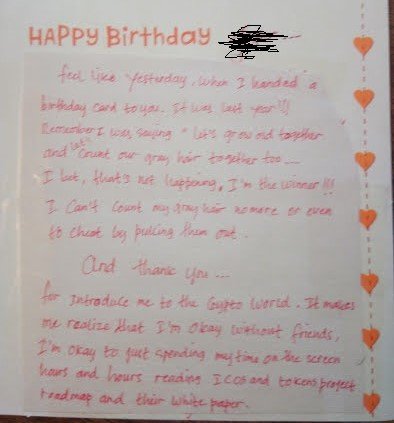 HAPPY Birthday
feel like yesterday, when I handed a
birthday card to you. It was last year!!!
Remember I was saying "let's grow old together
and let's count our gray hair together too ....
I bet, that's not happening. I'm the winner!!!
I can't count my gray hair no more or even
to cheat by pulling them out.
And thank you ....
for introduce me to the Crypto World. It makes
me realize that I'm okay without friends,
I'm okay to just spending my time on the screen
hours and hours reading ICOS and tokens project
roadmap and their white paper.